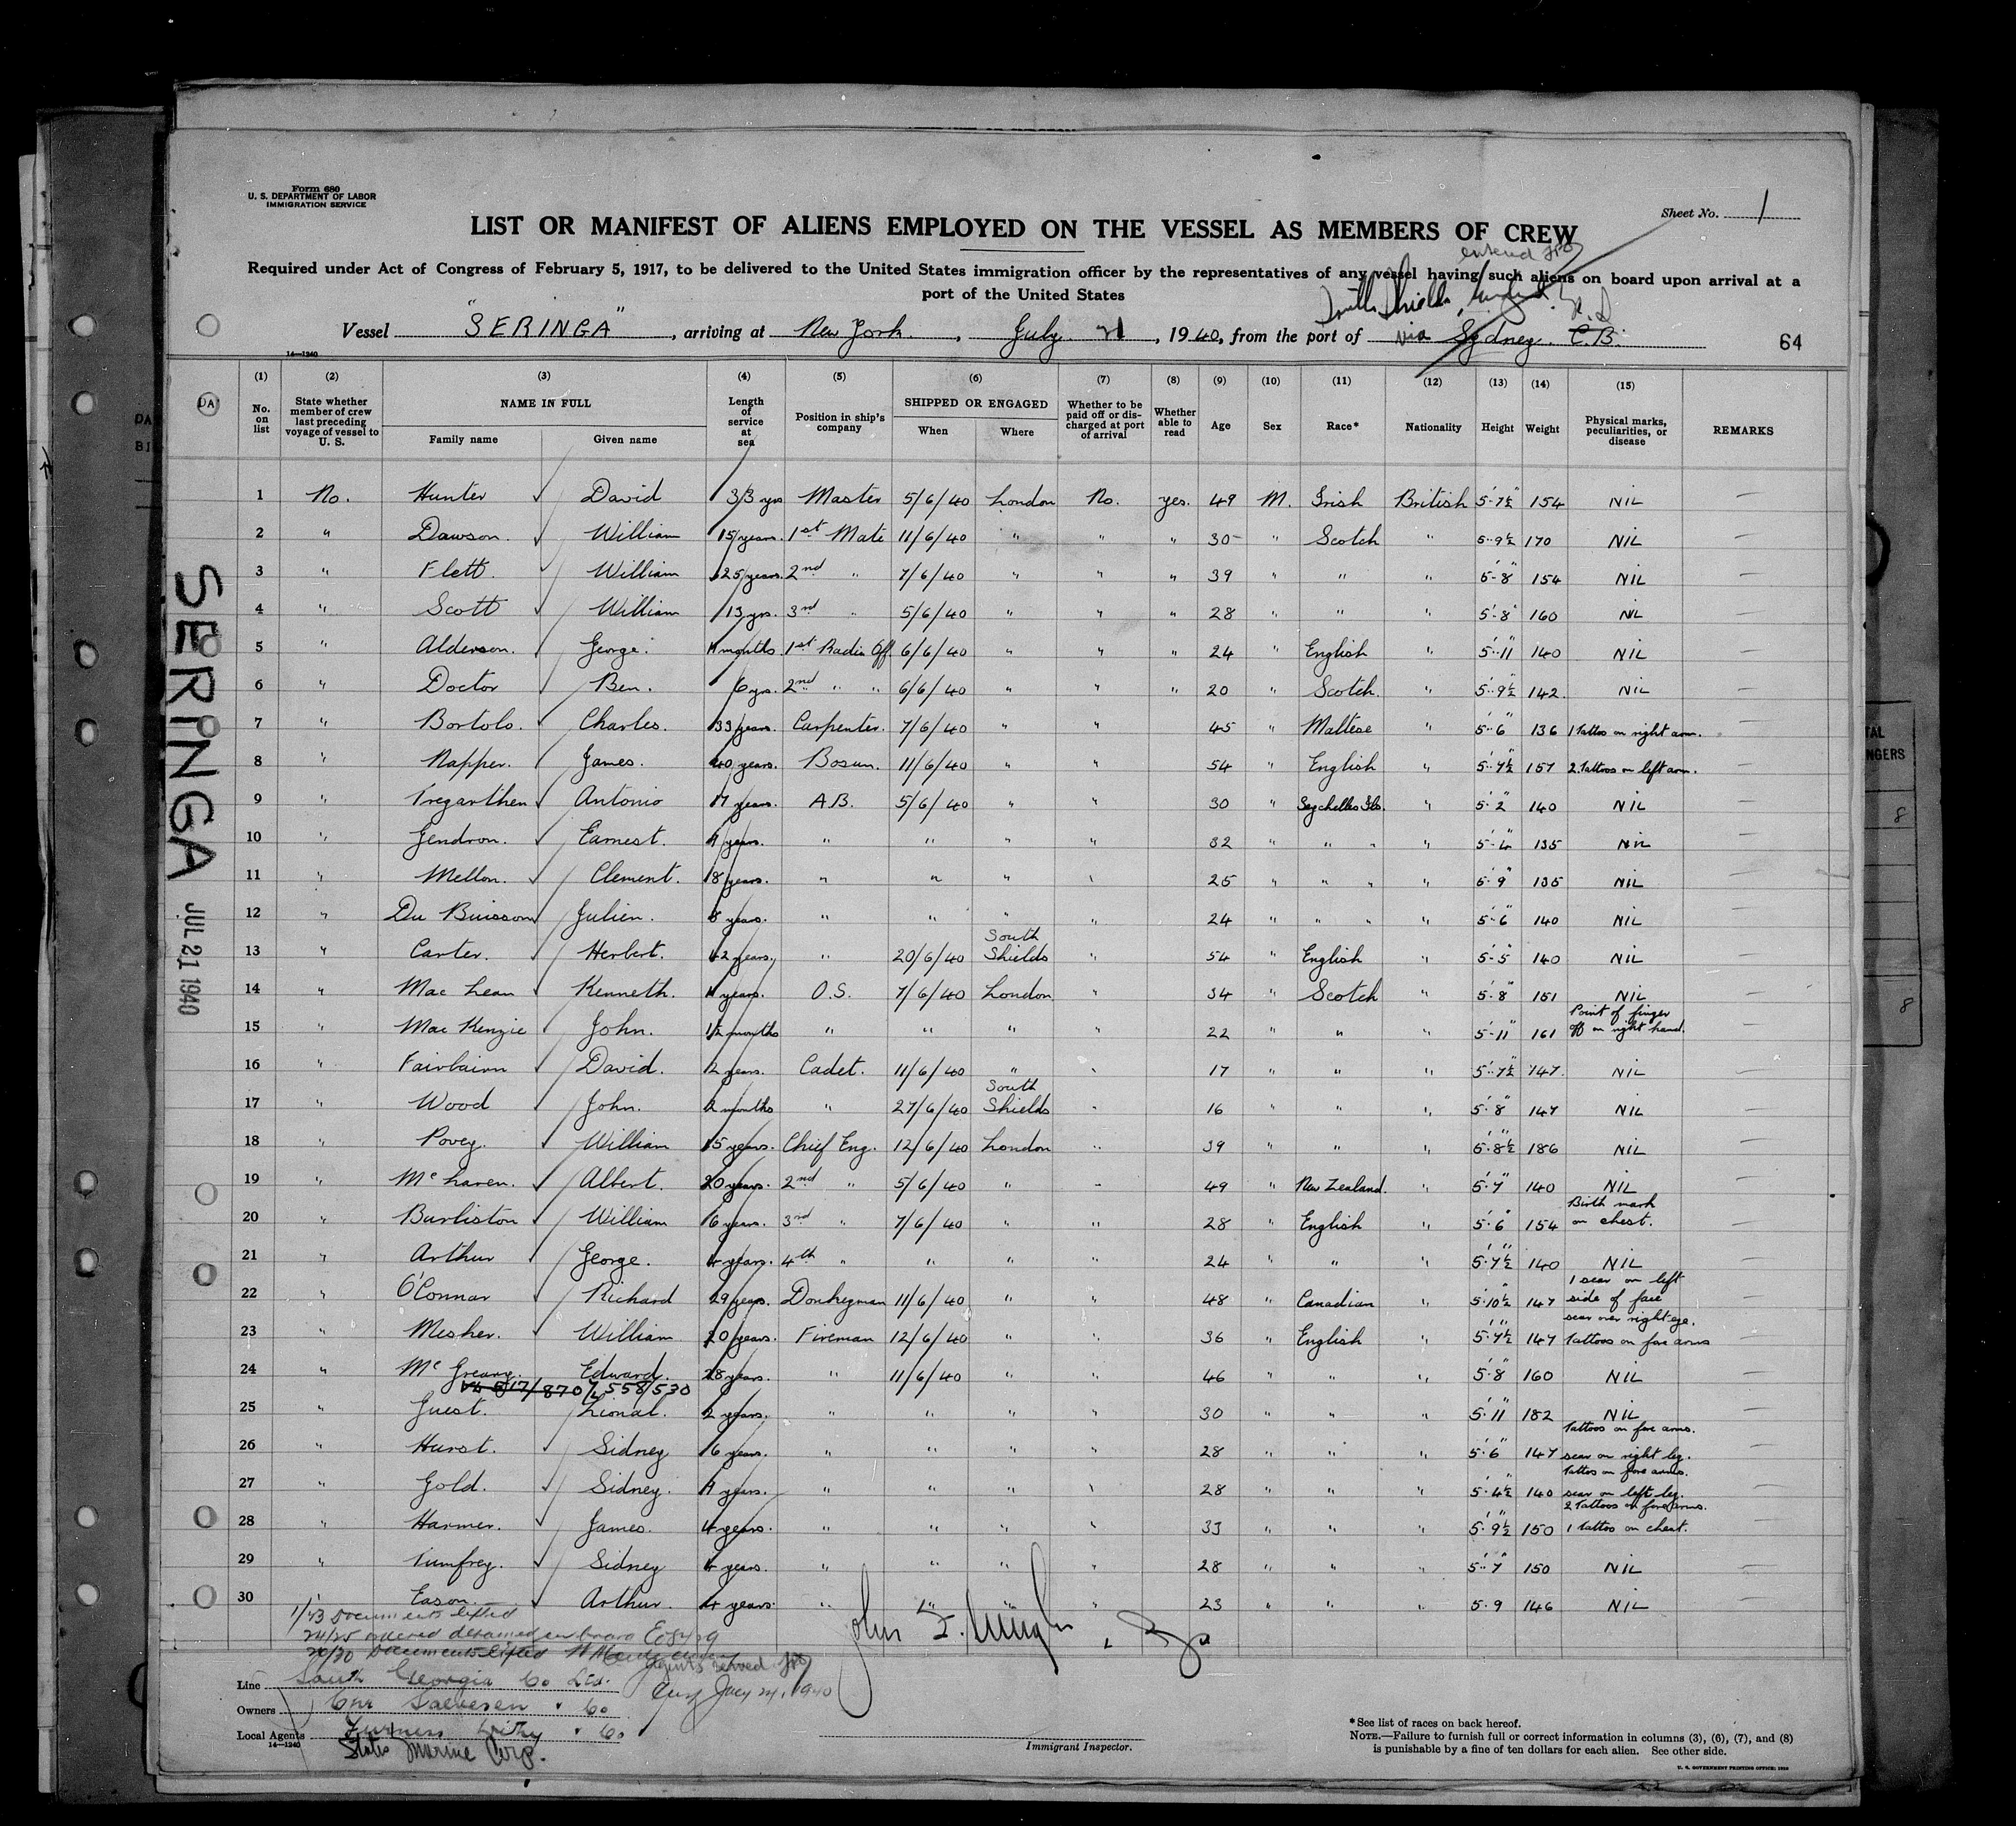 Form 680
U. S. DEPARTMENT OF LABOR
IMMIGRATION SERVICE
Sheet No. 1
LIST OR MANIFEST OF ALIENS EMPLOYED ON THE VESSEL AS MEMBERS OF CREW
Required under Act of Congress of February 5, 1917, to be delivered to the United States immigration officer by the representatives of any vessel having such aliens on board upon arrival at a
port of the United States
South Shields, England
Vessel "SERINGA", arriving at New York, July 21, 1940, from the port of via Sydney. C.B.
64
14—1240
(1) (2) (3) (4) (5) (6) (7) (8) (9) (10) (11) (12) (13) (14) (15)
No. on list
State whether member of crew last preceding voyage of vessel to U. S.
NAME IN FULL
Family name Given name
Length of service at sea
Position in ship's company
SHIPPED OR ENGAGED
When Where
Whether to be paid off or discharged at port of arrival
Whether able to read
Age Sex Race* Nationality Height Weight
Physical marks, peculiarities, or disease
REMARKS
1 No. Hunter David 33 yrs Master 5/6/40 London No. yes. 49 M. Irish British 5'-7½" 154 NIL —
2 " Dawson. William 15 years. 1st Mate 11/6/40 " " " 30 " Scotch " 5'-9½ 170 NIL —
3 " Flett. William 25 years. 2nd " 7/6/40 " " " 39 " " " 5'-8" 154 NIL —
4 " Scott William 13 yrs. 3rd " 5/6/40 " " " 28 " " " 5'-8" 160 NIL —
5 " Alderson. George. months. 1st Radio Off. 6/6/40 " " " 24 " English " 5'-11" 140 NIL —
6 " Doctor Ben. 6 yrs. 2nd " " 6/6/40 " " " 20 " Scotch. " 5'-9½" 142. NIL —
7 " Bortolo. Charles. 33 years. Carpenter. 7/6/40 " " 45 " Maltese " 5'-6" 136 1 Tattoo on right arm. —
8 " Napper. James. 40 years. Bosun. 11/6/40 " " 54 " English " 5'-7½" 157 2 Tattoos on left arm. —
9 " Tregarthen Antonio 17 years. A.B. 5/6/40 " " 30 " Seychelles Ils. " 5'-2" 140 NIL —
10 " Gendron. Earnest. 9 years. " " " " 32 " " " " 5'-4" 135 NIL —
11 " Mellon. Clement. 8 years. " " " " 25 " " " " 5'-9" 135 NIL —
12 " Du Buisson Julien. 8 years. " " " " 24 " " " " 5'-6" 140 NIL —
13 " Carter. Herbert. 42 years. " 20/6/40 South Shields " 54 " English " 5'-5" 140 NIL —
14 " Mac Lean Kenneth. years. O.S. 7/6/40 London " 34 " Scotch " 5'-8" 151 NIL —
15 " Mac Kenzie John. months " " " " 22 " " " 5'-11" 161 Point of finger off on right hand. —
16 " Fairbairn David. 2 years. Cadet. 11/6/40 " " 17 " " " 5'-7½" 147 NIL —
17 " Wood John. 2 months " 27/6/40 South Shields " 16 " " " 5'-8" 147 NIL —
18 " Povey. William 15 years. Chief Eng. 12/6/40 London " 39 " " " 5'-8½" 186 NIL —
19 " Mc Laren. Albert. 20 years. 2nd " 5/6/40 " " 49 " New Zealand. " 5'-7" 140 NIL —
20 " Burliston William 6 years. 3rd " 7/6/40 " " 28 " English " 5'-6" 154 Birth mark on chest. —
21 " Arthur George. 4 years. 4th " " " " 24 " " " 5'-7½" 140 NIL —
22 " O'Connar Richard 29 years. Donkeyman 11/6/40 " " 48 " Canadian " 5'-10½" 147 1 scar on left side of face —
23 " Mesher. William 20 years. Fireman 12/6/40 " " 36 " English " 5'-7½" 147 scar over right eye. Tattoos on fore arms —
24 " Mc Greavy. Edward. 28 years. " 11/6/40 " " 46 " " " 5'-8" 160 NIL —
558/530
25 " Guest. Lional. 2 years. " " " " 30 " " " 5'-11" 182 NIL —
26 " Hurst. Sidney 6 years. " " " " 28 " " " 5'-6" 147 Tattoos on fore arms. scar on right leg. —
27 " Gold. Sidney. 9 years. " " " " 28 " " " 5'-4½" 140 Tattoo on fore arms. scar on left leg. —
28 " Harmer. James. 4 years. " " " " 33 " " " 5'-9½" 150 2 Tattoos on fore arms. 1 Tattoo on chest. —
29 " Tumfrey. Sidney 4 years. " " " " 28 " " " 5'-7" 150 NIL —
30 " Eason. Arthur. 4 years. " " " " 23 " " " 5'-9 146 NIL —
1/23 Documents lifted
24/25 ordered detained on board
26/30 Documents lifted
Line South Georgia Co Ltd.
July 24, 1940
Owners Chr Salvesen & Co
Local Agents Furness Withy & Co
14—1240
States Marine Corp.
Immigrant Inspector.
*See list of races on back hereof.
NOTE.—Failure to furnish full or correct information in columns (3), (6), (7), and (8)
is punishable by a fine of ten dollars for each alien. See other side.
U. S. GOVERNMENT PRINTING OFFICE
SERINGA
JUL 21 1940
8
8